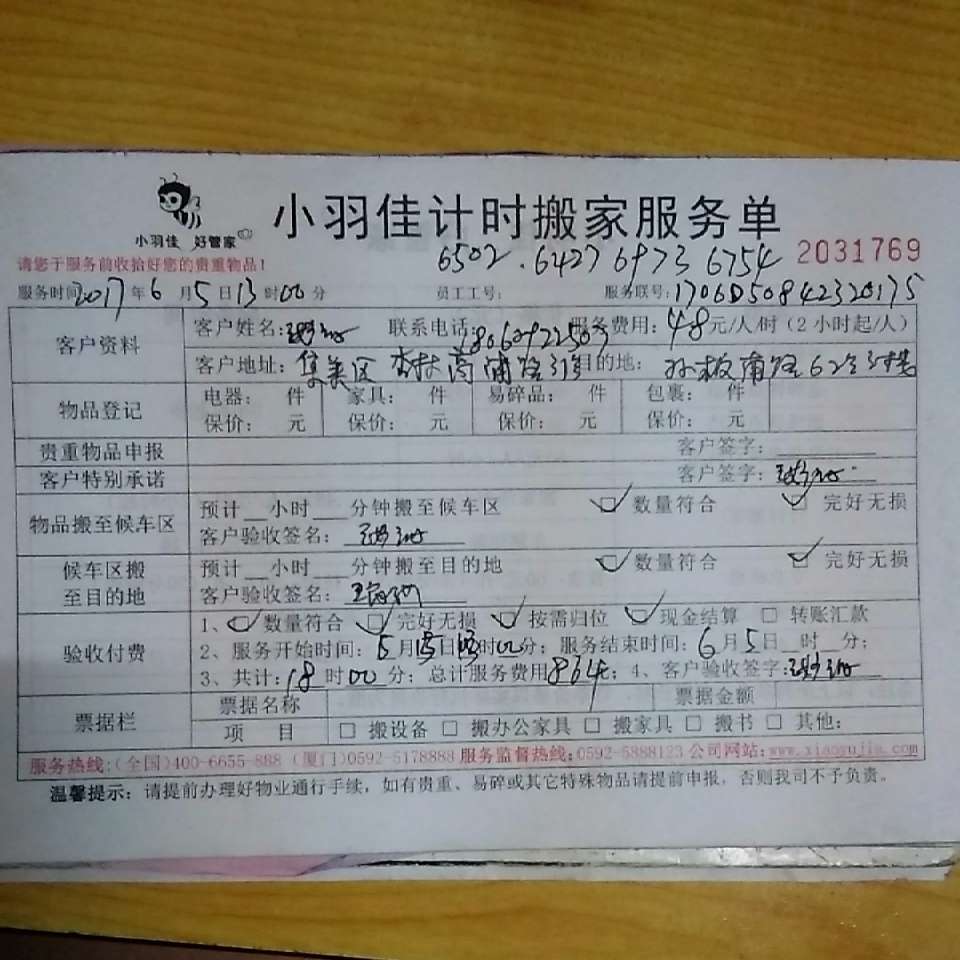 小羽佳 好管家
小羽佳计时搬家服务单
6502.6427 6973 6754 2031769
请您于服务前收拾好您的贵重物品!
服务时间2017年6月5日13时00分 员工工号: 服务联号:1706050842320175
客户资料 客户姓名: 联系电话:18060922509 服务费用:48元/人/时(2小时起/人)
客户地址:集美区杏林高浦路 目的地: 板甫路62号
物品登记 电器: 件 家具: 件 易碎品: 件 包裹: 件
保价: 元 保价: 元 保价: 元 保价: 元
贵重物品申报 客户签字:
客户特别承诺 客户签字:
物品搬至候车区 预计__小时___分钟搬至候车区 数量符合 完好无损
客户验收签名:
候车区搬至目的地 预计__小时___分钟搬至目的地 数量符合 完好无损
客户验收签名:
验收付费 1、数量符合 完好无损 按需归位 现金结算 转账汇款
2、服务开始时间:5月 日 时00分;服务结束时间:6月5日__时__分;
3、共计:18时00分;总计服务费用864;4、客户验收签字:
票据栏 票据名称 票据金额
项 目 搬设备 搬办公家具 搬家具 搬书 其他:
服务热线:(全国)400-6655-888 (厦门)0592-5178888 服务监督热线:0592-5888123 公司网站:www.xiaoyujia.com
温馨提示:请提前办理好物业通行手续,如有贵重、易碎或其它特殊物品请提前申报,否则我司不予负责。